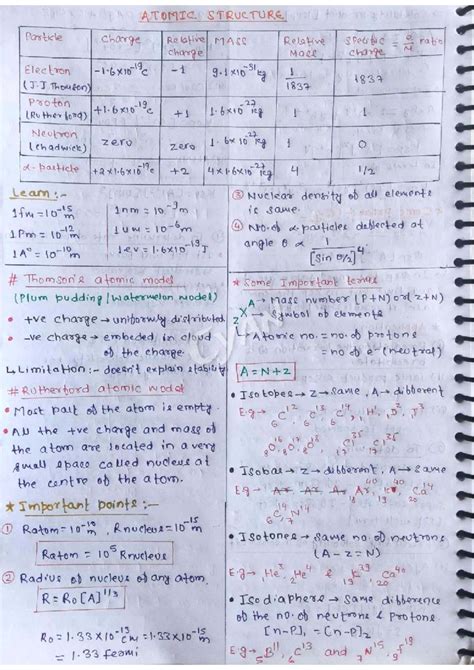 ATOMIC STRUCTURE
Particle Charge Relative charge Mass Relative Mass Specific charge = e/m ratio
Electron (J.J. Thomson) -1.6×10⁻¹⁹C -1 9.1×10⁻³¹ kg 1/1837 1837
Proton (Rutherford) +1.6×10⁻¹⁹C +1 1.6×10⁻²⁷ kg 1 1
Neutron (Chadwick) zero zero 1.6×10⁻²⁷ kg 1 0
α-particle +2×1.6×10⁻¹⁹C +2 4×1.6×10⁻²⁷ kg 4 1/2
Learn :-
1fm = 10⁻¹⁵m 1nm = 10⁻⁹m
1Pm = 10⁻¹²m 1um = 10⁻⁶m
1A° = 10⁻¹⁰m 1ev = 1.6×10⁻¹⁹J
# Thomson's atomic model
(Plum pudding/watermelon model)
• +ve charge → uniformly distributed
• -ve charge → embeded in cloud
of the charge.
↳ Limitation :- doesn't explain stability
# Rutherford atomic model
• Most part of the atom is empty.
• All the +ve charge and mass of
the atom are located in a very
small space called nucleus at
the centre of the atom.
★ Important points :—
① Ratom = 10⁻¹⁰m, Rnucleus = 10⁻¹⁵m
Ratom = 10⁵ Rnucleus
② Radius of nucleus of any atom.
R = R₀[A]^1/3
R₀ = 1.33×10⁻¹³cm = 1.33×10⁻¹⁵m
= 1.33 fermi
③ Nuclear density of all elements
is same.
④ No. of α particles deflected at
angle θ ∝ 1/[sin θ/2]⁴
★ Some Important terms
A → Mass number (P+N) or (Z+N)
X → Symbol of elements
Z
Atomic no. = no. of protons
= no. of e⁻ (neutral)
A = N+Z
• Isotopes → Z → same, A → different
E.g → ₆C¹², ₆C¹³, ₆C¹⁴
₈O¹⁶, ₈O¹⁷, ₈O¹⁸
• Isobar → Z → different, A → same
₆C¹⁴, ₇N¹⁴
• Isotones → Same no. of neutrons
(A-Z = N)
• Isodiaphers → Same difference
of the no. of neutrons & protons
[n-P]₁ = [n-P]₂
E.g → ₅B¹¹, ₆C¹³ and ₇N¹⁵, ₉F¹⁹